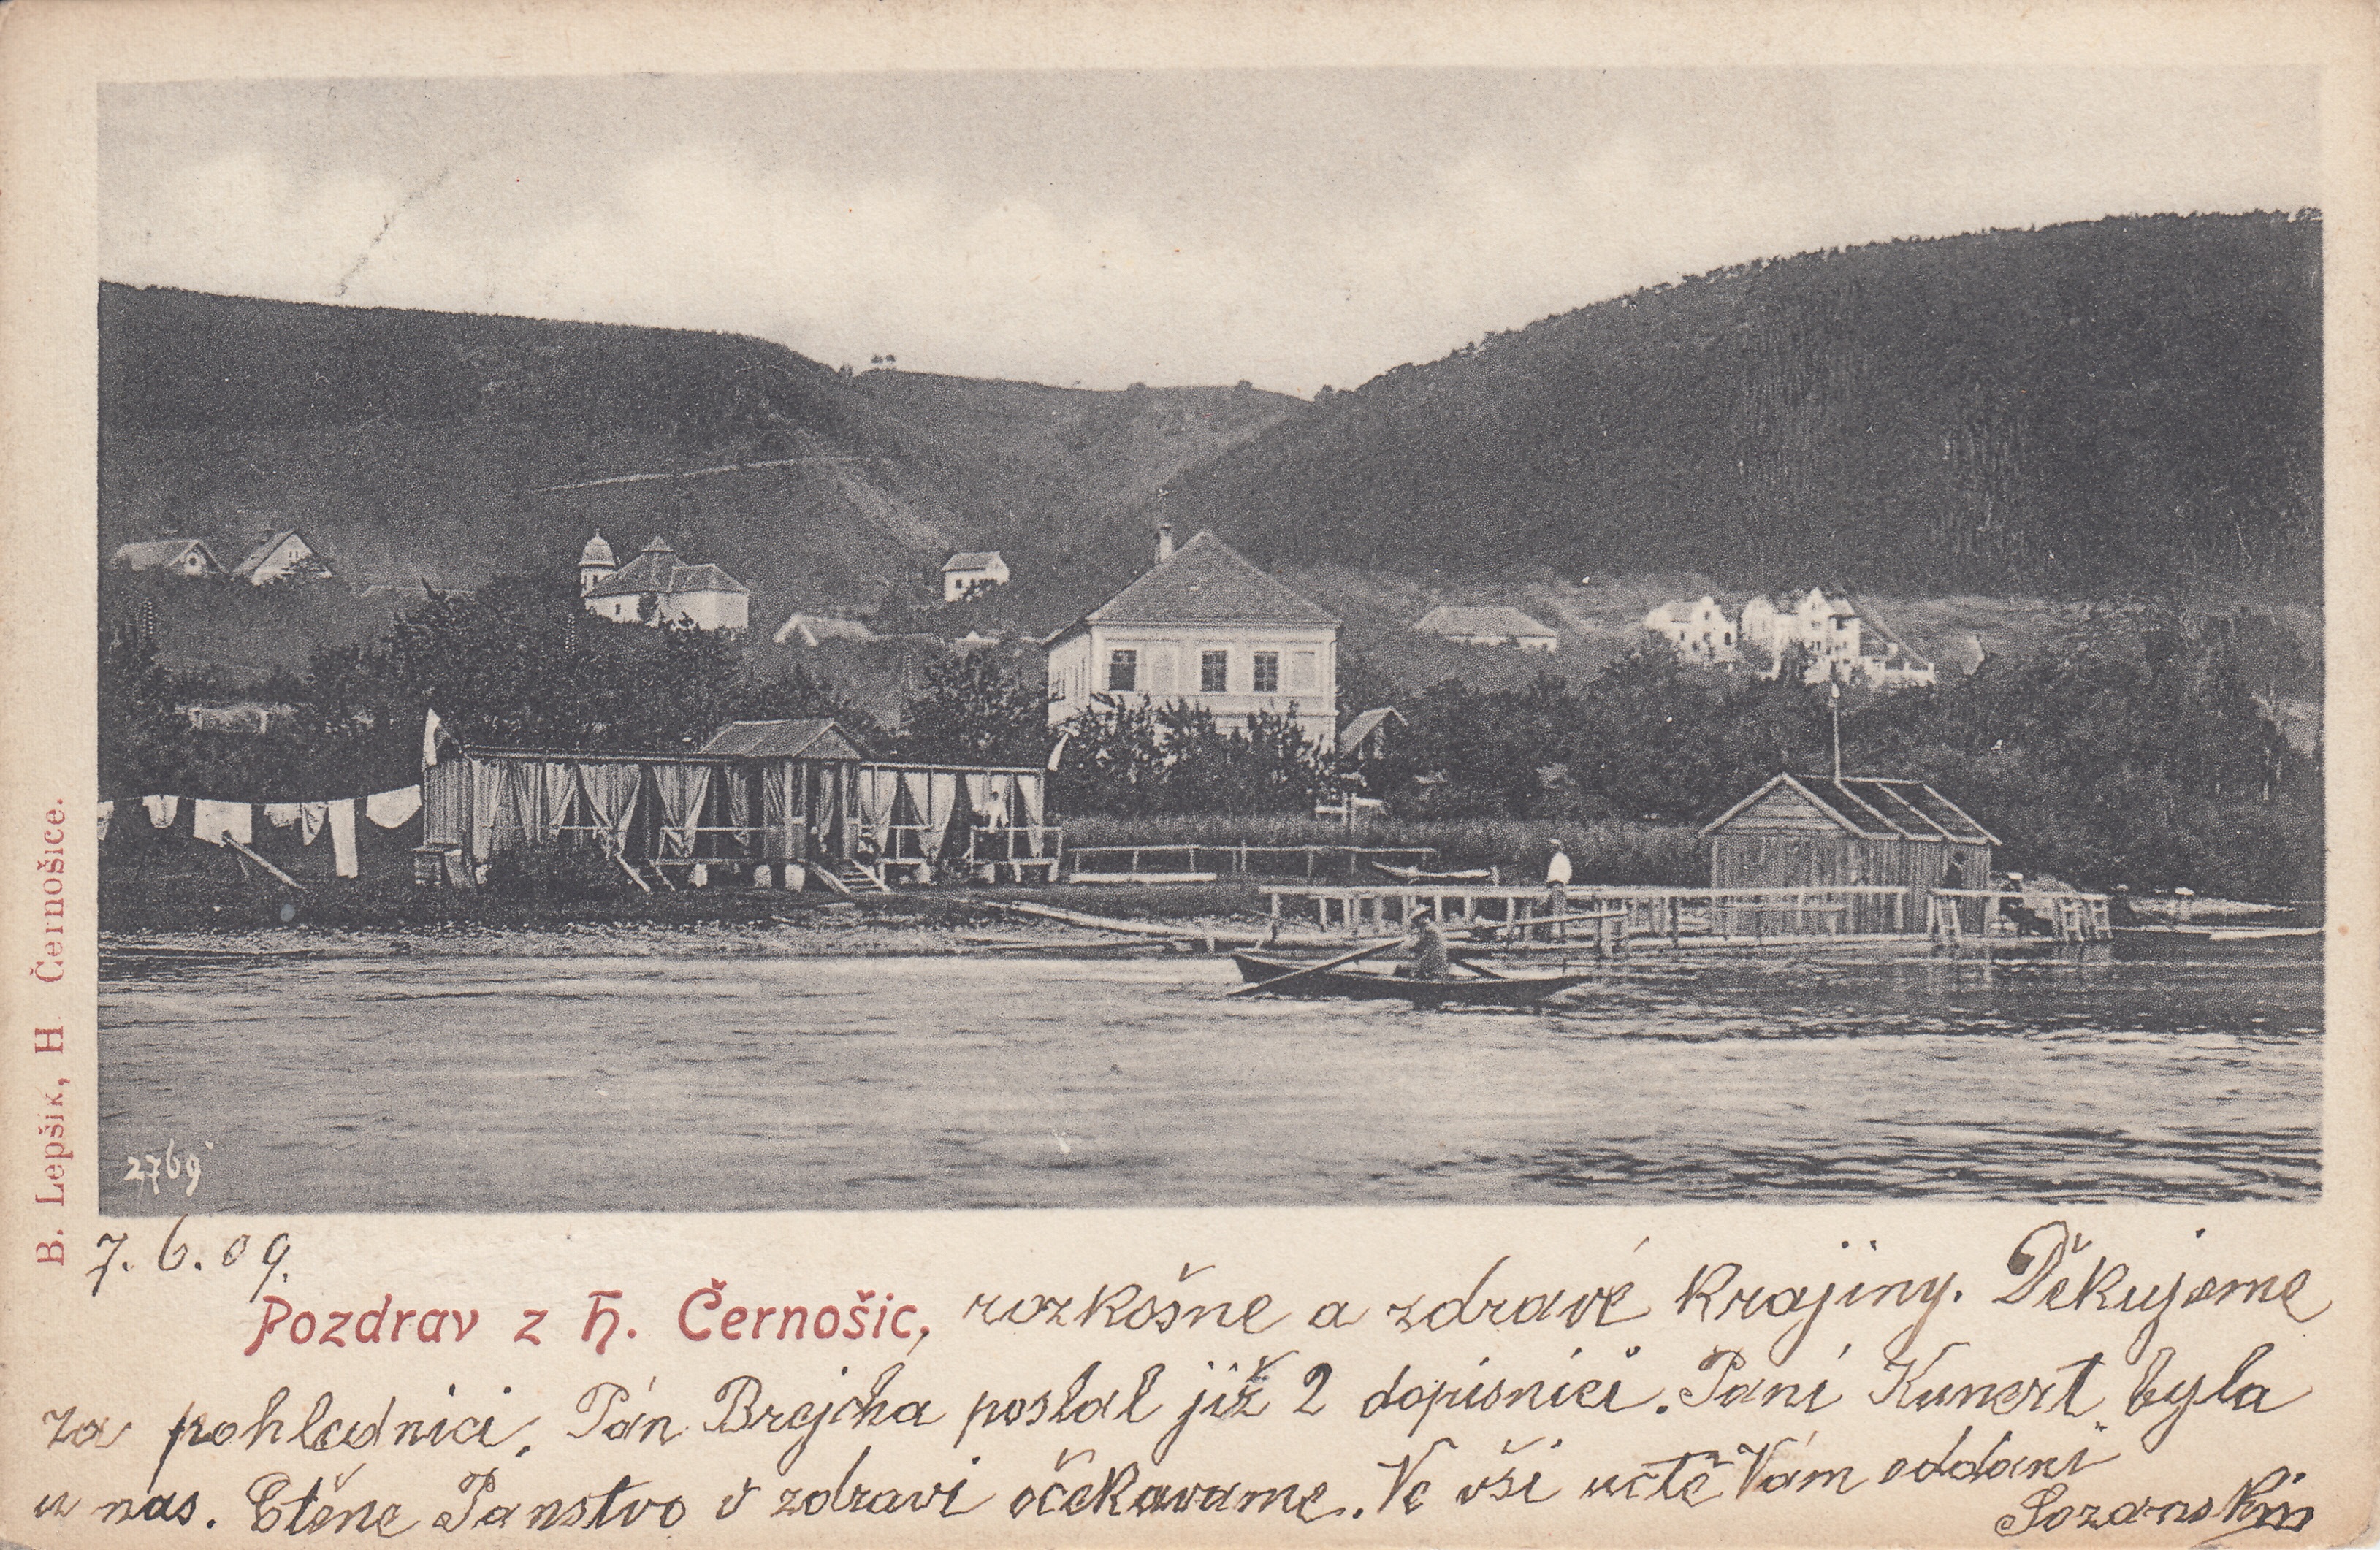 B. Lepšík, H Černošice.
2769
7. 6. 09.
Pozdrav z H. Černošic, rozkošne a zdravé krajiny. Děkujeme
za pohlednici. Pán Brejcha poslal již 2 dopisnici. Paní Kunert byla
u nas. Ctěne Panstvo v zdravi očekavame. Ve vši uctě Vám oddani